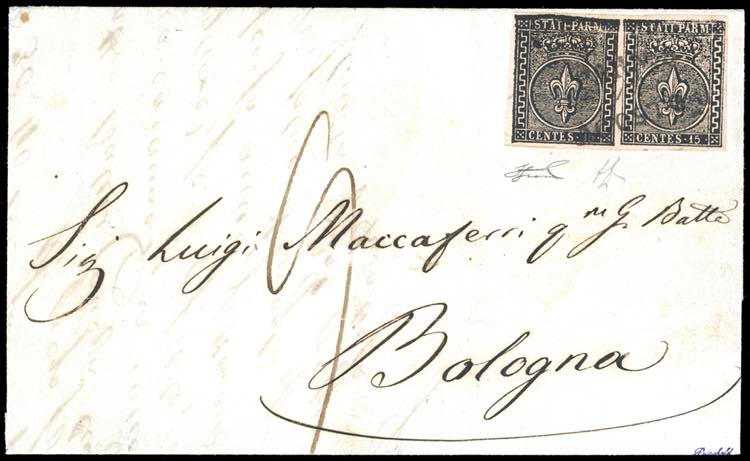 STATI PARM STATI PARM
CENTES. 15 CENTES. 15
Sig Luigi Maccaferri q.m G. Batta
Bologna